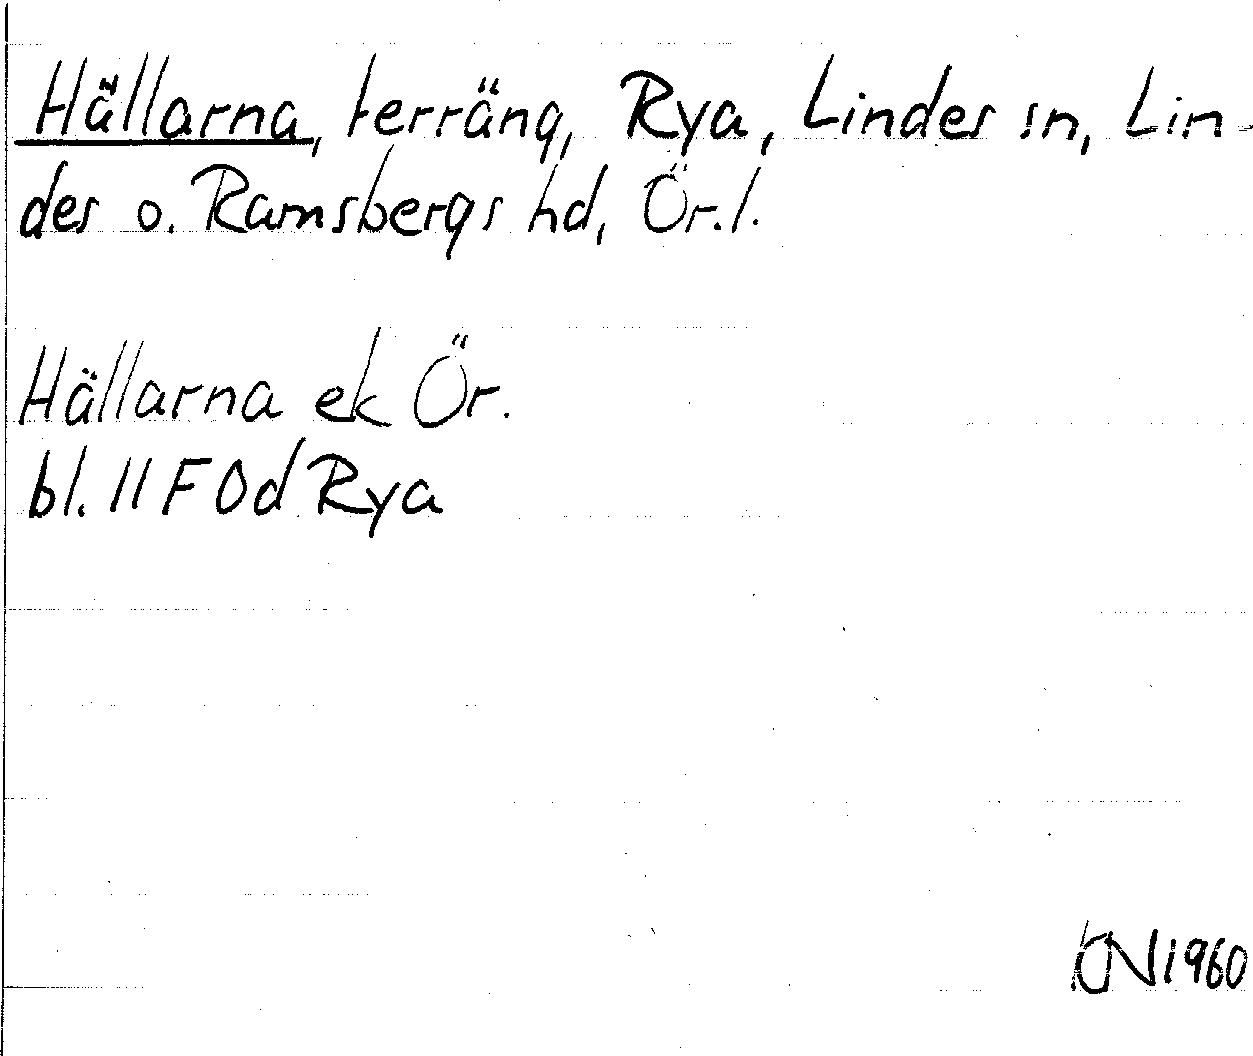 Hällarna, terräng, Rya, Lindes sn, Lin-
des o. Ramsbergs hd, Ör.l.
Hällarna ek Ör.
bl. 11 F 0d Rya
1960